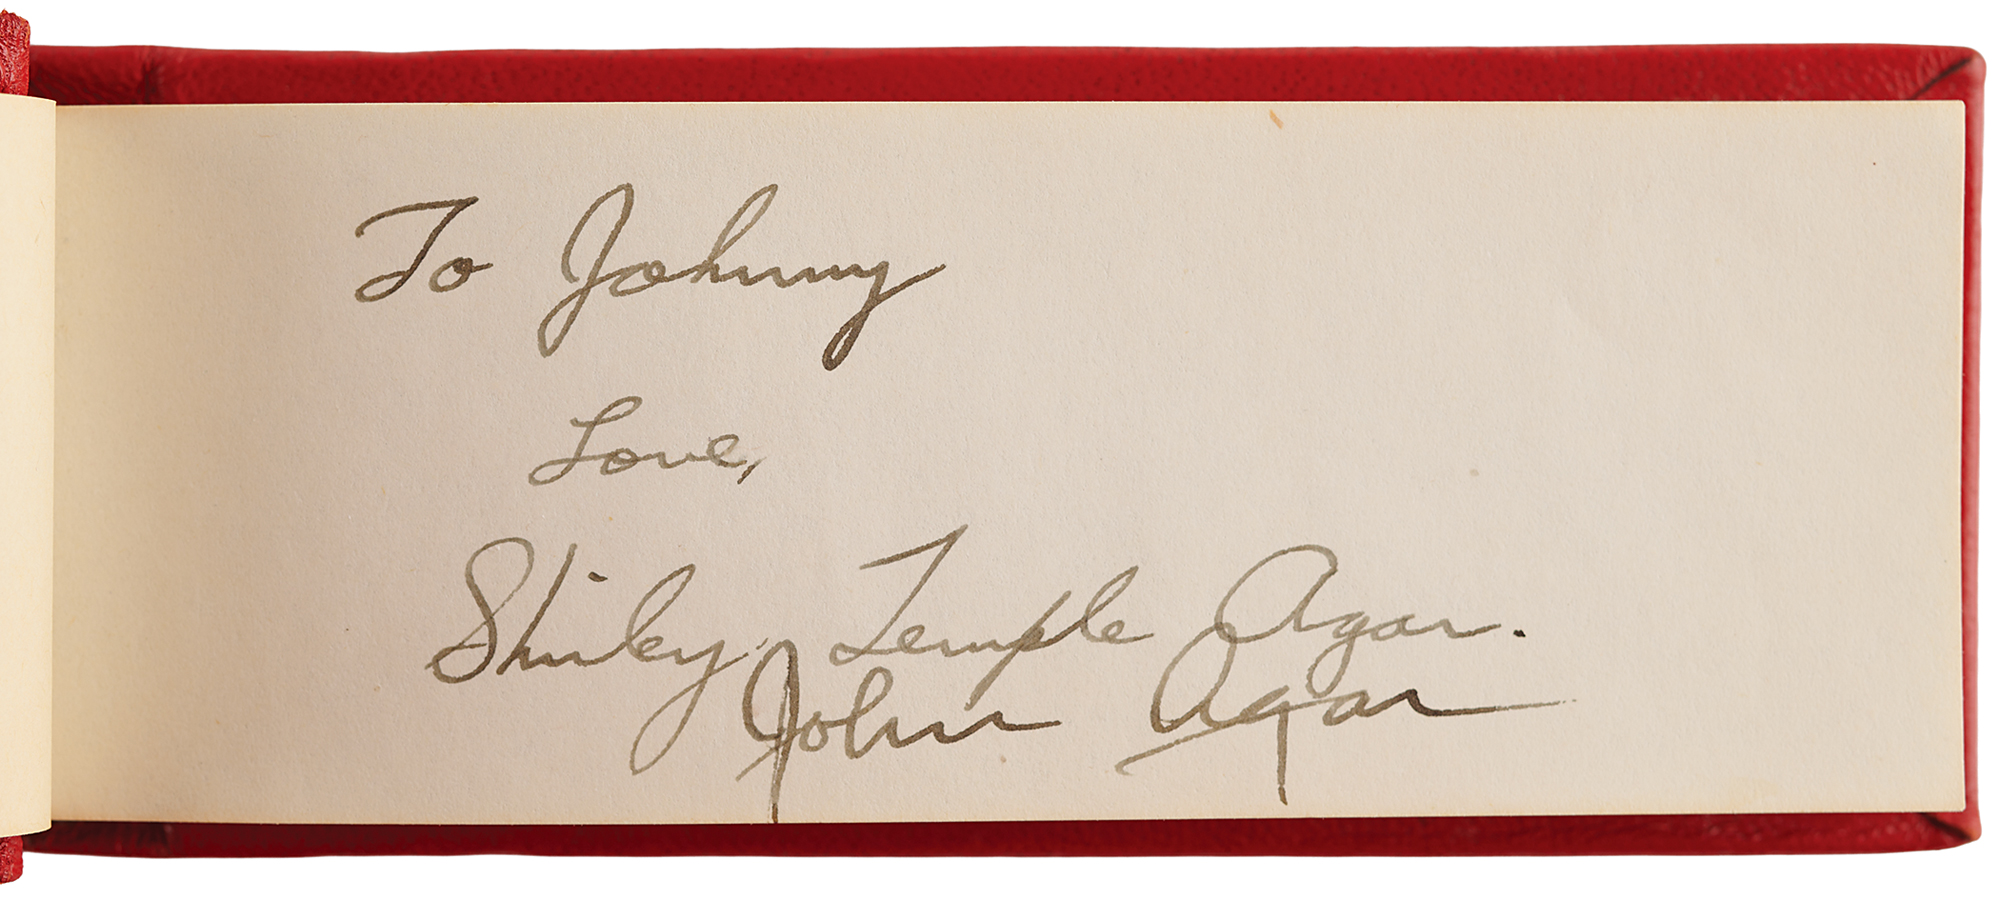 To Johnny
Love,
Shirley Temple Agar.
John Agar